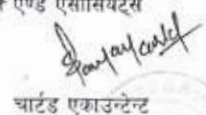 एण्ड एसोसियेट्स
चार्टड एकाउन्टेन्ट